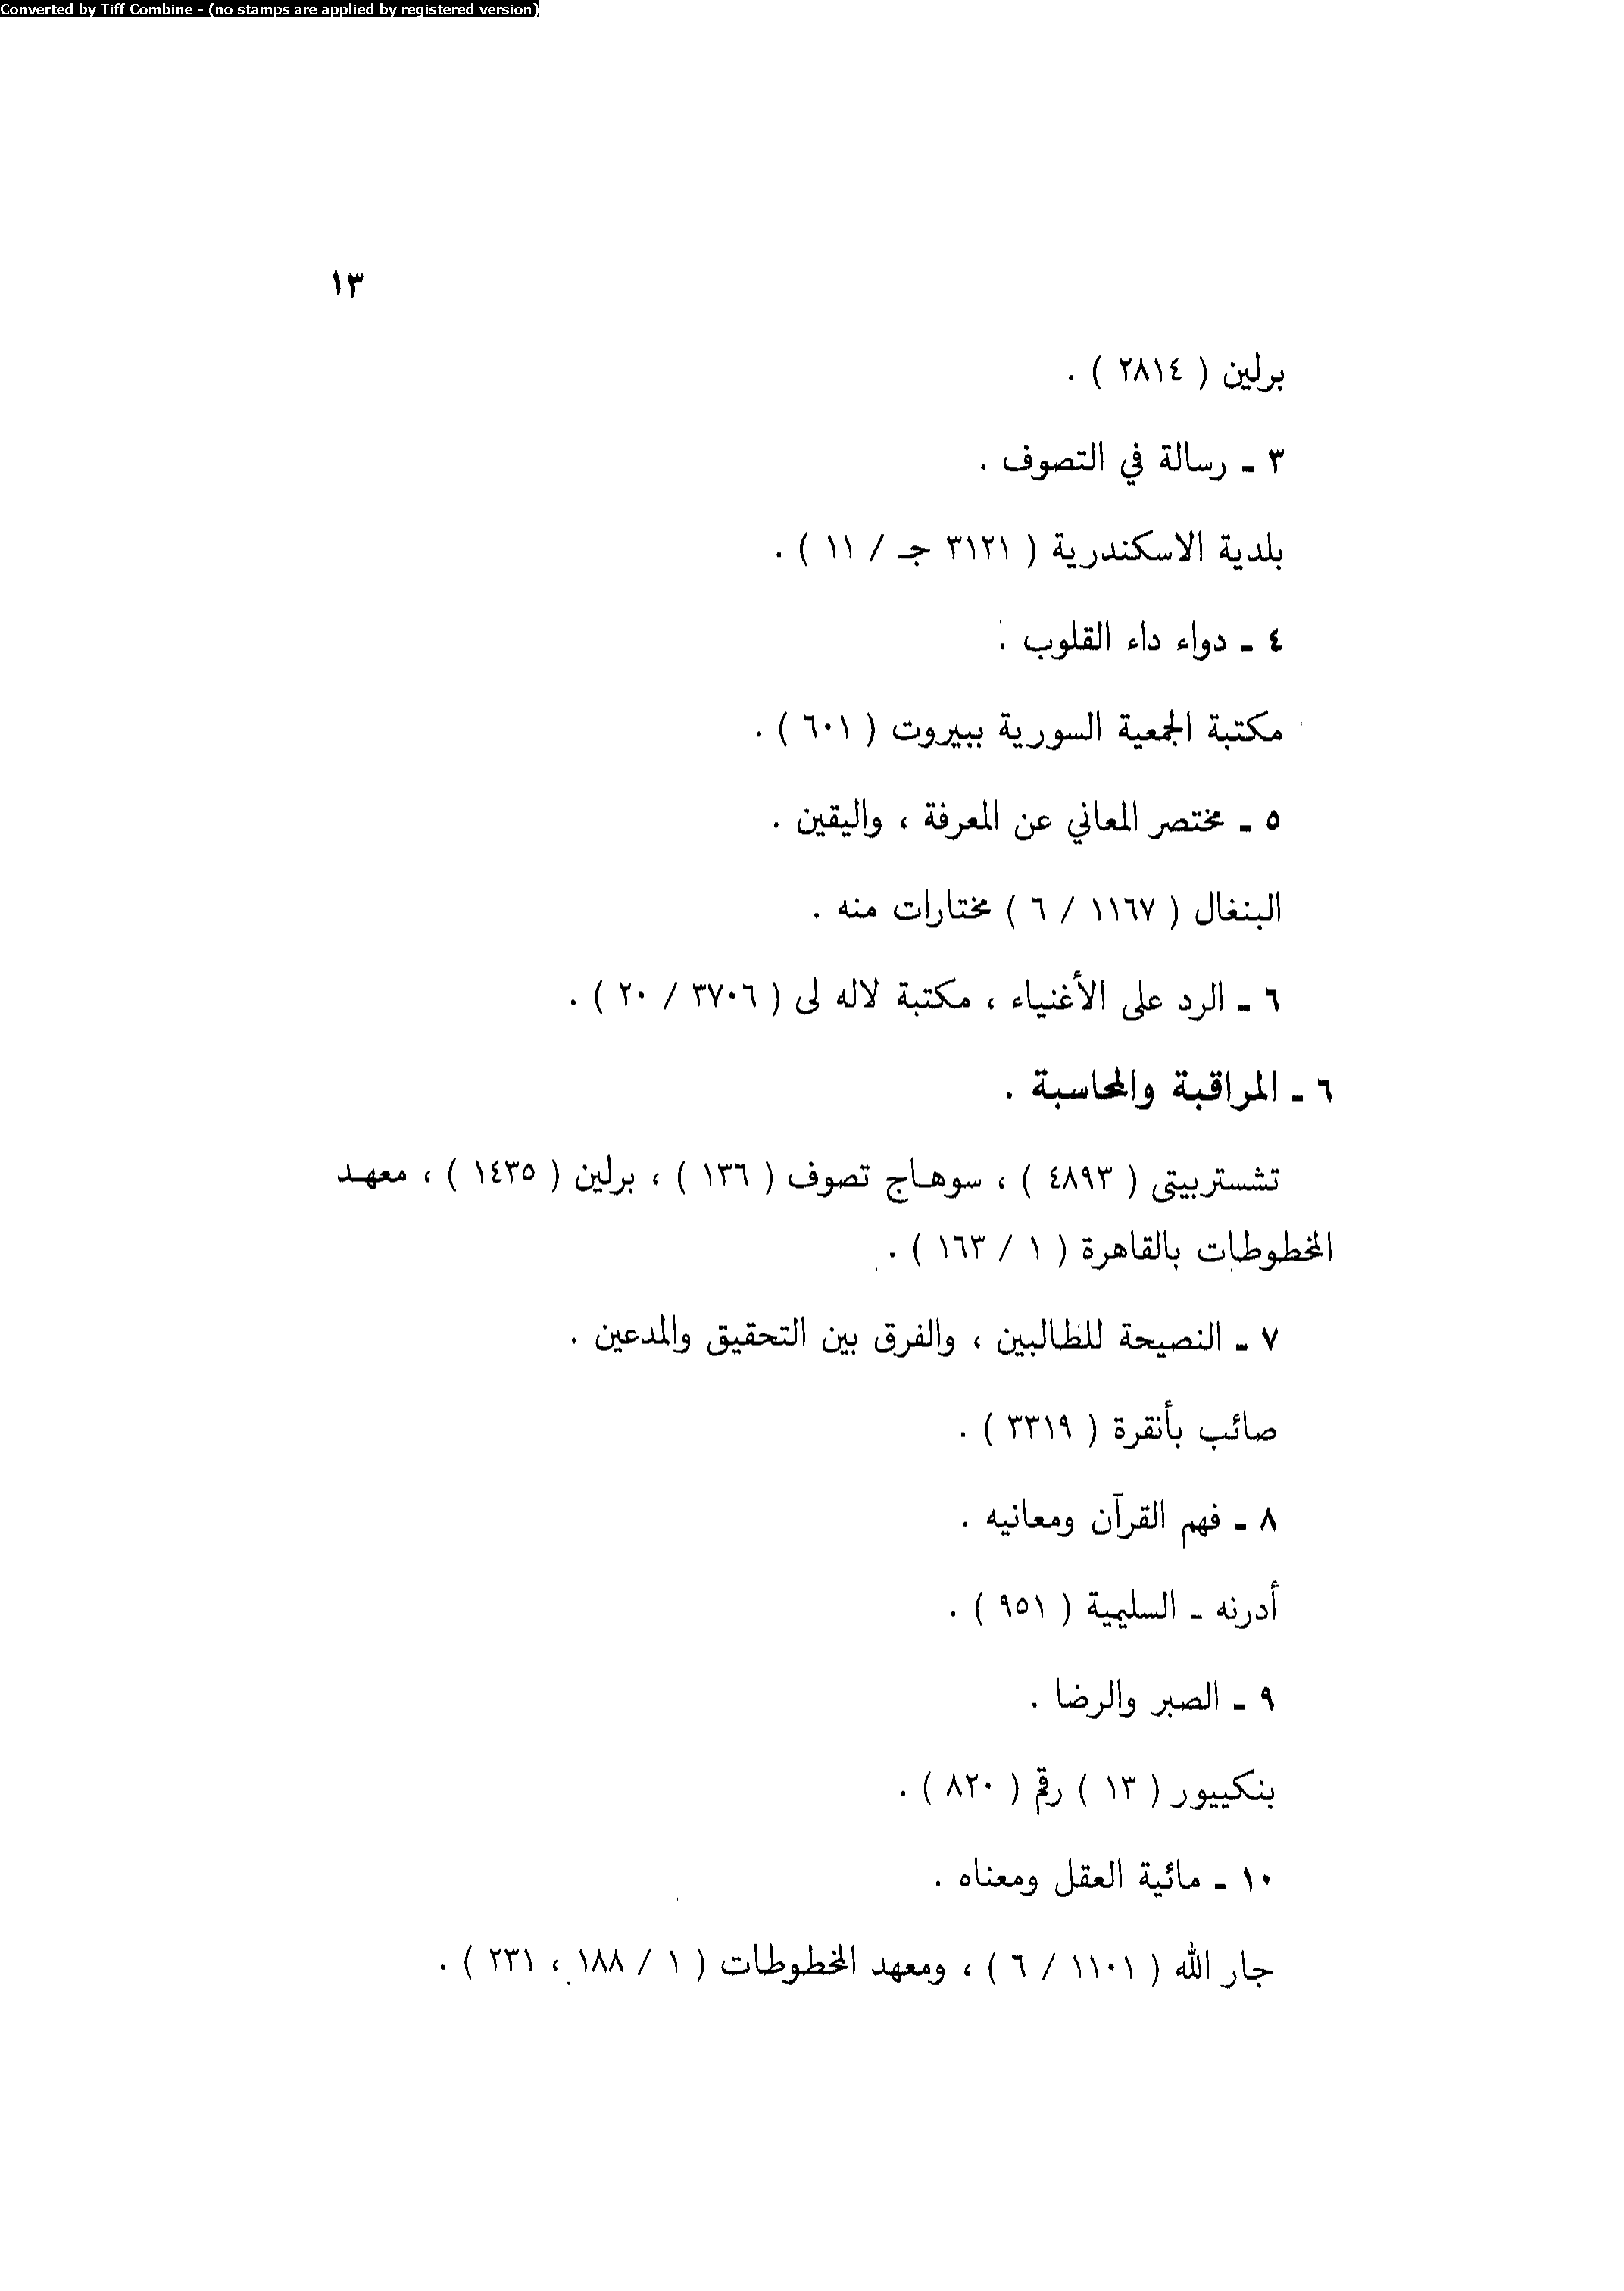 Converted by Tiff Combine - (no stamps are applied by registered version)
١٣
برلين ( ٢٨١٤ ) .
٣ ـ رسالة في التصوف .
بلدية الاسكندرية ( ٣١٢١ جـ / ١١ ) .
٤ ـ دواء داء القلوب .
مكتبة الجمعية السورية ببيروت ( ٦٠١ ) .
٥ ـ مختصر المعاني عن المعرفة ، واليقين .
البنغال ( ١١٦٧ / ٦ ) مختارات منه .
٦ ـ الرد على الأغنياء ، مكتبة لاله لى ( ٣٧٠٦ / ٢٠ ) .
٦ ـ المراقبة والمحاسبة .
تشستربيتى ( ٤٨٩٣ ) ، سوهـاج تصوف ( ١٣٦ ) ، برلين ( ١٤٣٥ ) ، معهـد
المخطوطات بالقاهرة ( ١ / ١٦٣ ) .
٧ ـ النصيحة للطالبين ، والفرق بين التحقيق والمدعين .
صائب بأنقرة ( ٣٣١٩ ) .
٨ ـ فهم القرآن ومعانيه .
أدرنه ـ السليمية ( ٩٥١ ) .
٩ ـ الصبر والرضا .
بنكييور ( ١٣ ) رقم ( ٨٢٠ ) .
١٠ ـ مائية العقل ومعناه .
جار الله ( ١١٠١ / ٦ ) ، ومعهد المخطوطات ( ١ / ١٨٨ ، ٢٣١ ) .